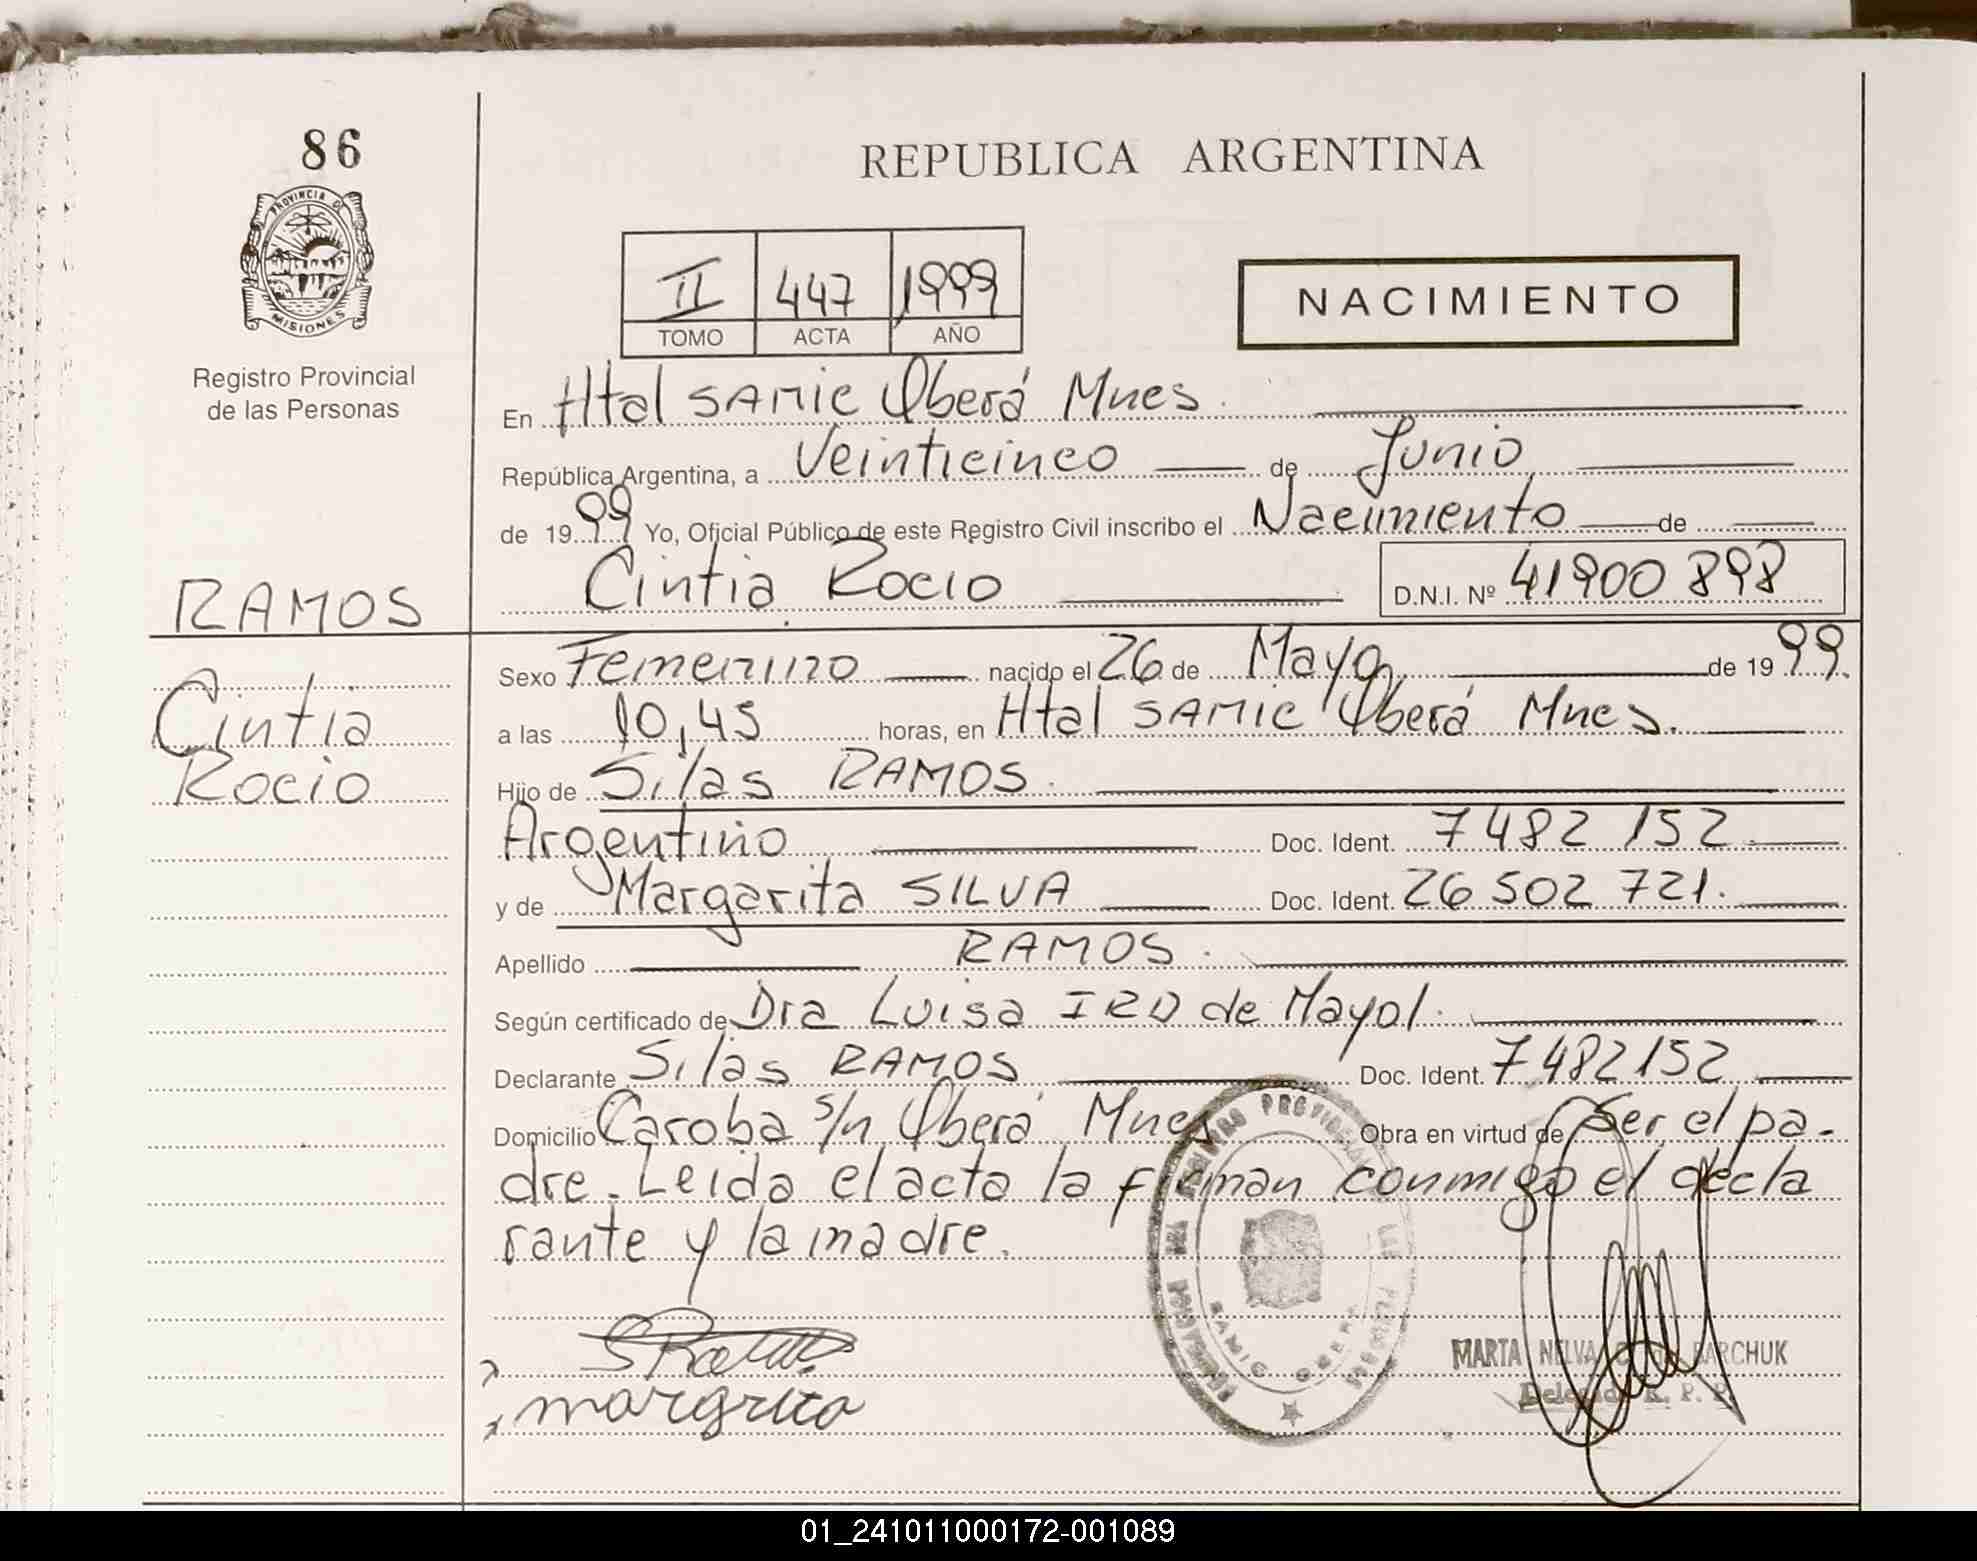 86
PROVINCIA DE
MISIONES
Registro Provincial
de las Personas
REPUBLICA ARGENTINA
II 447 1999
TOMO ACTA AÑO
NACIMIENTO
En Htal SAMIC Oberá Mnes.
República Argentina, a Veinticinco de Junio
de 1999 Yo, Oficial Público de este Registro Civil inscribo el Nacimiento de
Cintia Rocio D.N.I. Nº 41900 898
RAMOS
Cintia
Rocio
Sexo Femenino nacido el 26 de Mayo de 1999.
a las 10,45 horas, en Htal SAMIC Oberá Mnes.
Hijo de Silas RAMOS.
Argentino Doc. Ident. 7482 152
y de Margarita SILVA Doc. Ident. 26 502 721.
Apellido RAMOS.
Según certificado de Dra Luisa IRO de Mayol.
Declarante Silas RAMOS Doc. Ident. 7482152
Domicilio Caroba s/n Oberá Mnes Obra en virtud de Ser el pa-
dre. Leida el acta la firman conmigo el decla
rante y la madre.
margrita
MARTA NELVA BARCHUK
SAMIC OBERA
01_241011000172-001089